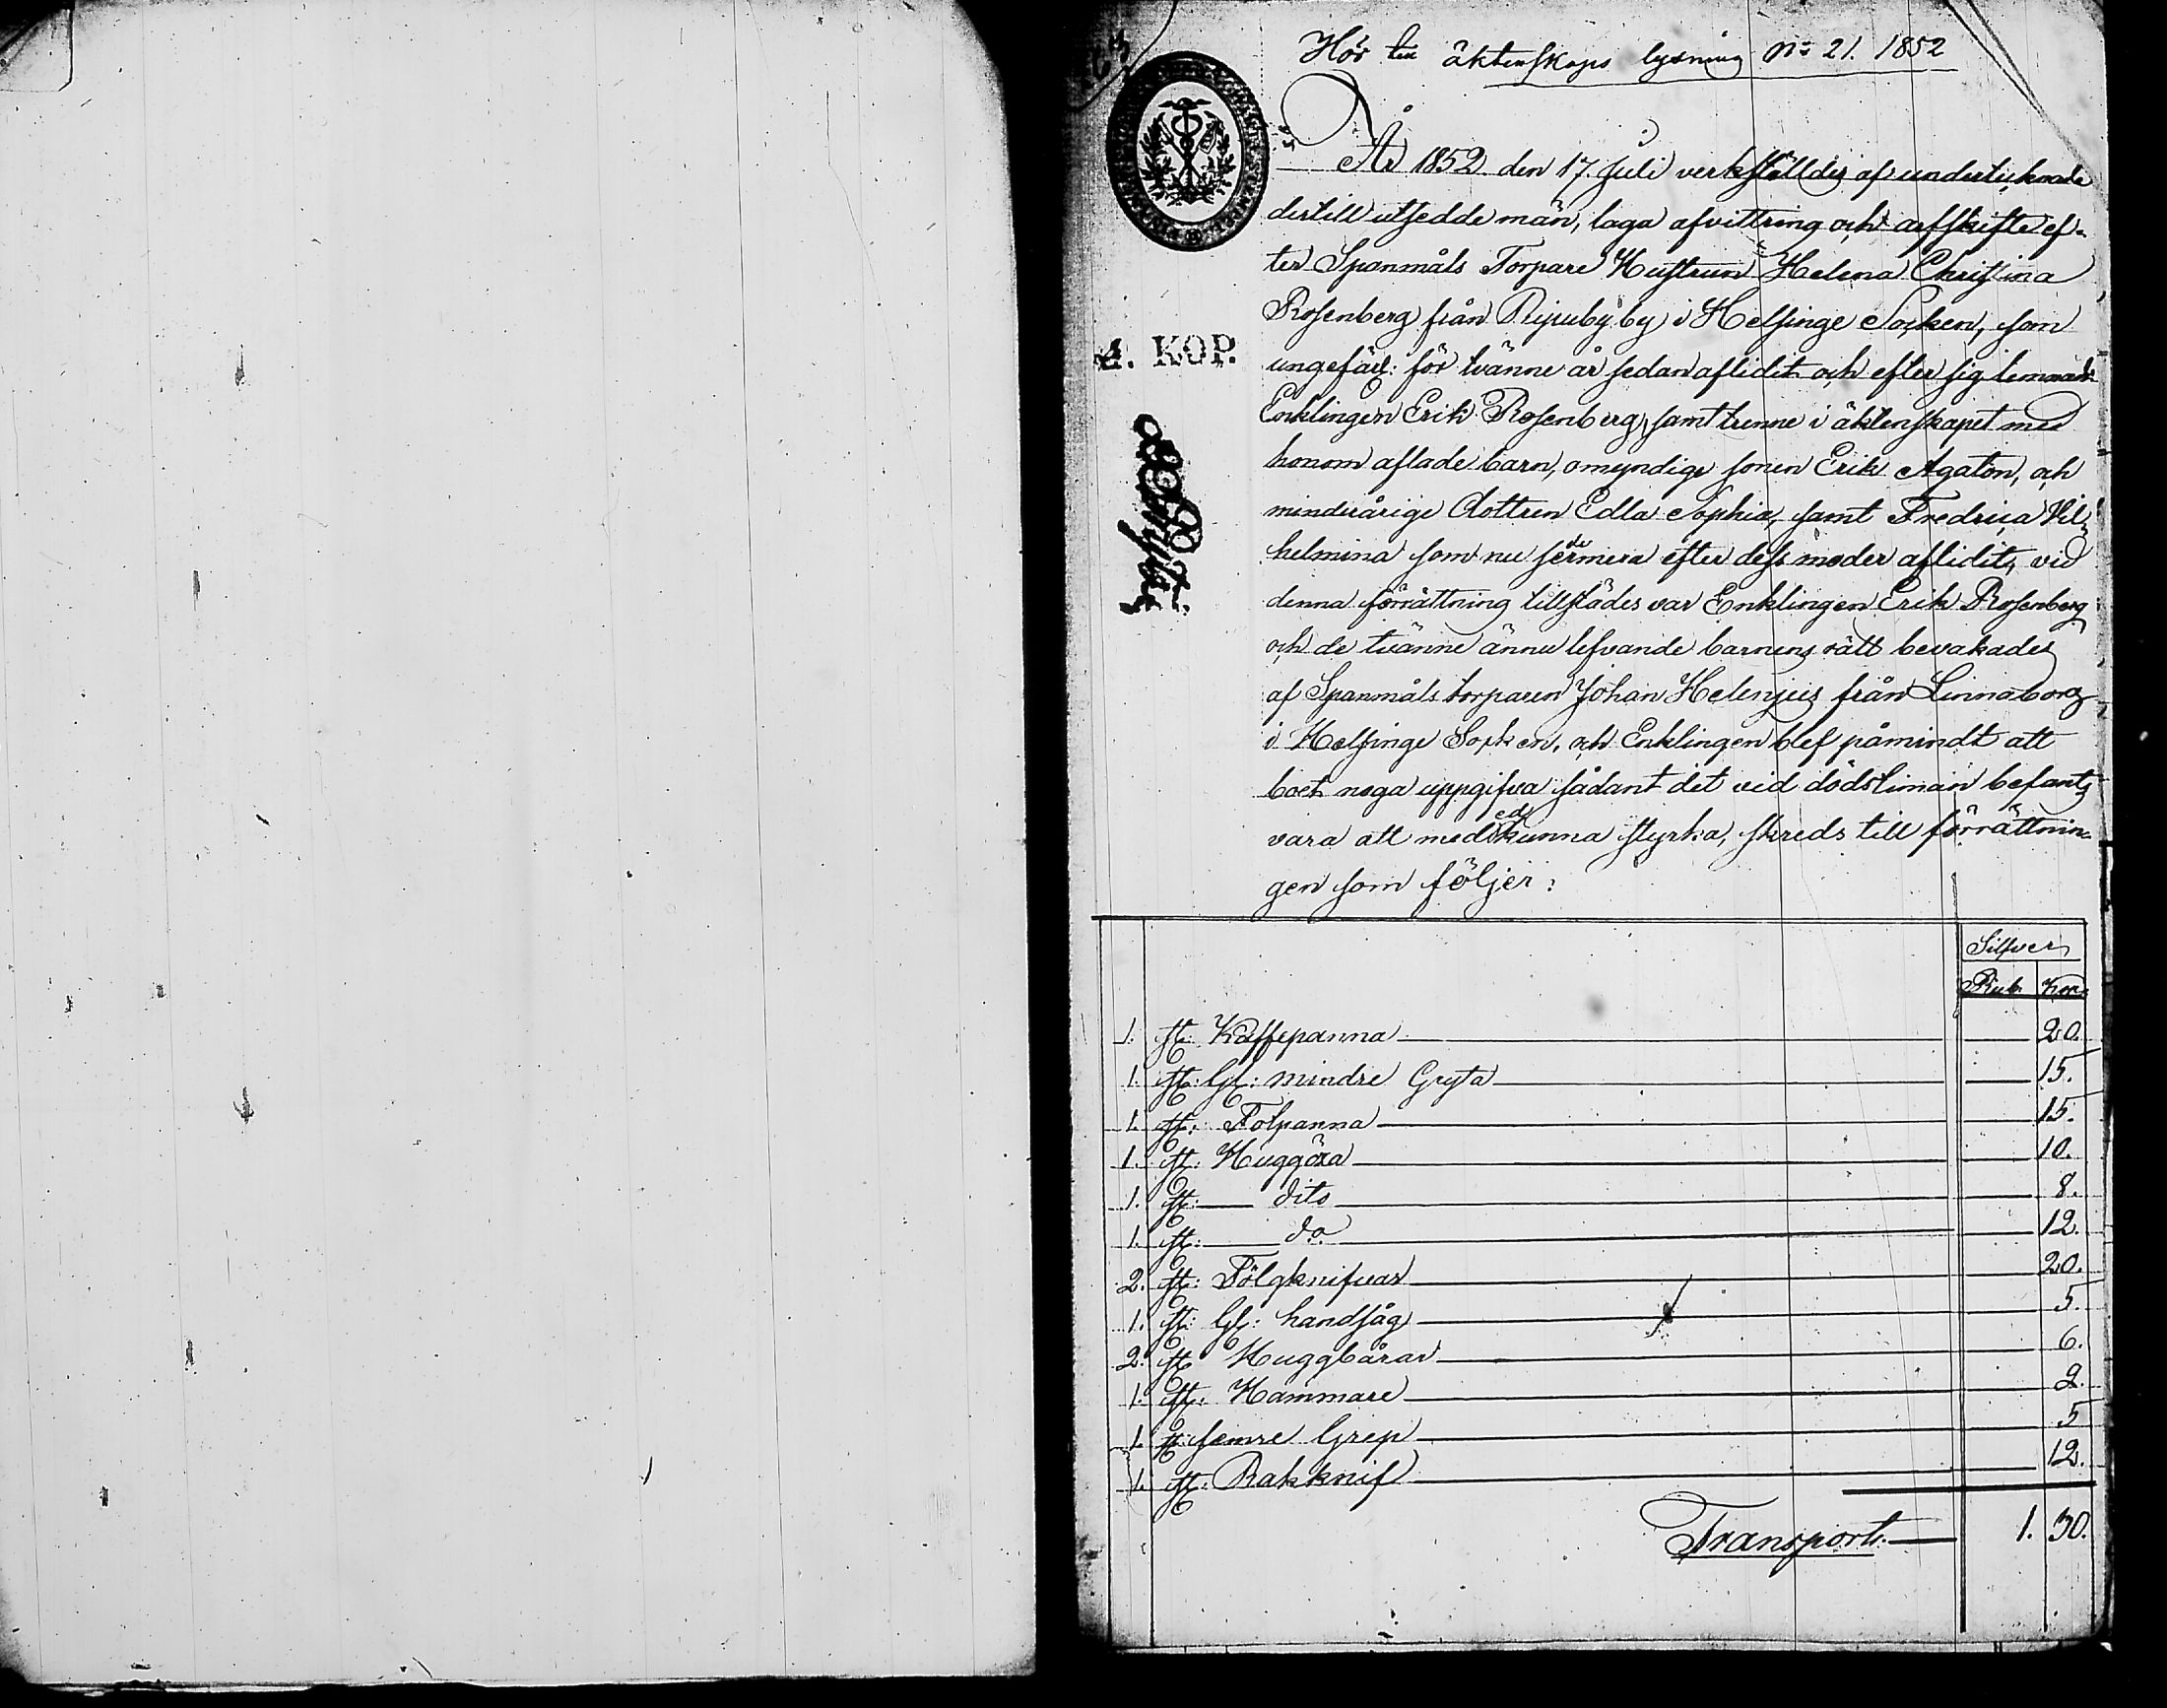 Hör till äktenskaps lysning No 21. 1852
År 1852 den 17. Juli verkstäldes af undertecknade
dertill utsedde män, laga afvittring och arfskifte ef-
ter Spanmåls Torpare Hustrun Helena Christina
Rosenberg från Ripuby by i Helsinge Socken, som
ungefär: för tvänne år sedan aflidit och efter sig lemnadt
Enklingen Erik Rosenberg, samt trenne i äktenskapet med
honom aflade barn, omyndige sonen Erik Agaton, och
minderårige dottren Edla Sophia, samt Fredrica Vil-
helmina som nu sedermera efter dess moder aflidit, vid
denna förrättning tillstädes var Enklingen Erik Rosenberg
och de tvänne ännu lefvande barnens rätt bevakades
af Spanmåls torparen Johan Helenius från Linnaborg
i Helsinge Socken, och Enklingen blef påmindt att
boet noga uppgifva sådant det vid dödstiman befants
vara att med ed kunna styrka, skreds till förrättnin-
gen som följer:
4. KOP.
Silfver
Rub. Kop.
1. st: Kaffepanna 20.
1. st: Gl: mindre Gryta 15.
1. st: Fotpanna 15.
1. st: Huggöxa 10.
1. st: dito 8.
1. st: do 12.
2. st: Fölgknifvar 20.
1. st: Gl: handsåg 5.
2. st Huggbårar 6.
1. st: Hammare 2.
1. st: semre Grep 5
1. st: Rakknif 12.
Transport. 1. 30.